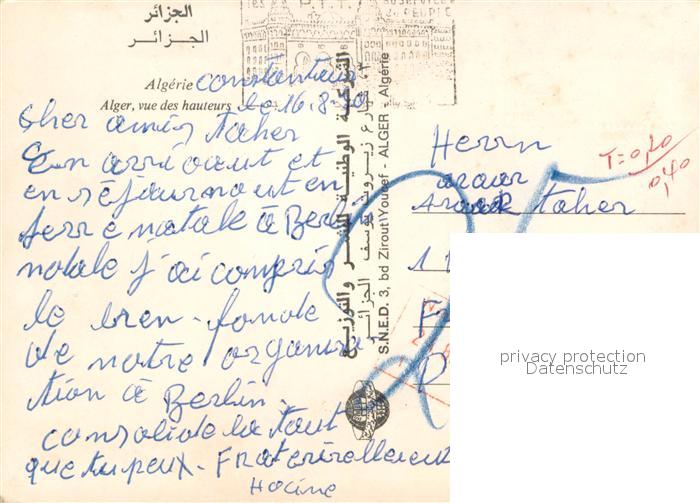 الجزائر
الجزائر
P.T.T.
Algérie
Alger, vue des hauteurs
constantine
le 16.8.
Cher amis taher
en arrivant et
en séjournant en
terre natale à Berlin
natale j'ai compris
le bien-fonde
de notre organisa
tion à Berlin.
consolide la tant
que tu peux. Fraternellement
Hocine
الشركة الوطنية للنشر والتوزيع
3، شارع زيروت يوسف الجزائر
S.N.E.D. 3, bd Zirout Youcef - ALGER - Algérie
Herrn
taher
T=0,20
0,40
privacy protection
Datenschutz